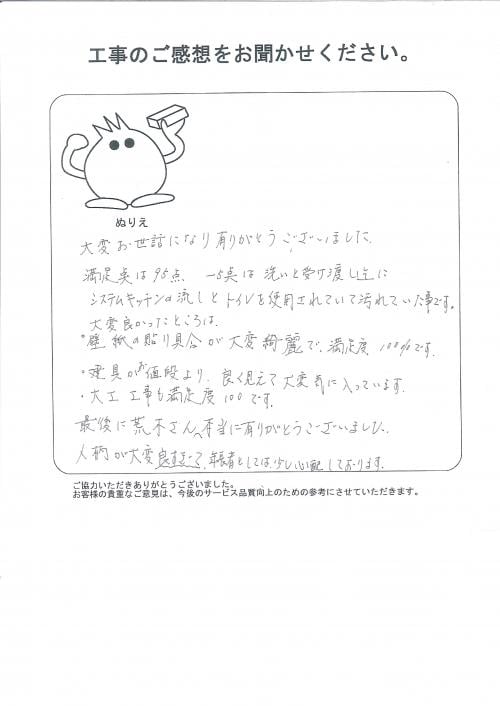 工事のご感想をお聞かせください。
ぬりえ
大変お世話になり有りがとうございました。
満足点は95点 −5点は 洗いと受け渡し上に
システムキッチンの流しとトイレを使用されていて汚れていた事です。
大変良かったところは、
・壁紙の貼り具合が大変綺麗で、満足度100%です。
・建具がお値段より、良く見えて大変気に入っています。
・大工工事も満足度100です。
最後に荒木さん、本当に有りがとうございました。
人柄が大変良すぎて、年長者としては少し心配しております。
ご協力いただきありがとうございました。
お客様の貴重なご意見は、今後のサービス品質向上のための参考にさせていただきます。